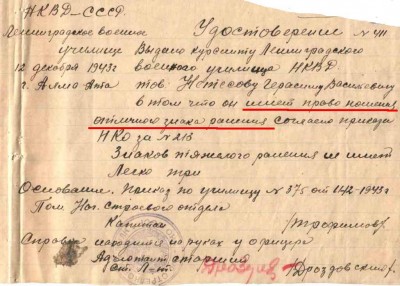 НКВД-СССР
Ленинградское военное училище
12 декабря 1943г
г. Алма Ата
Удостоверение № 411
Выдано курсанту Ленинградского
военного училища НКВД
тов. Герасиму Васильевичу
в том что он имеет право ношения
отличного знака ранения согласно приказа
НКО за № 213
Знаков тяжелого ранения не имеет
Легко три
Основание. Приказ по училищу № 375 от 1943г
Пом. Нач. строевого отдела
Капитан Трофимов
Справка находится на руках у офицера
Адъютант старший
Ст. Л-т. Дроздовский